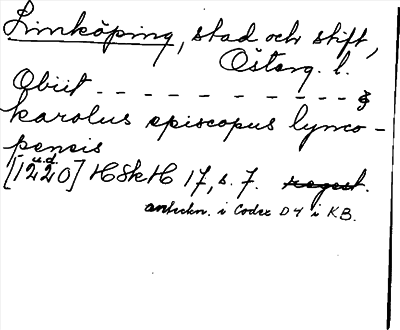 Linköping, stad och stift,
Österg. l.
Obiit - - - - - - - - - - - &
karolus episcopus lynco-
pensis
u.d.
[1220] HSkH 17, s. 7. regest.
anteckn. i Codex D 4 i KB.